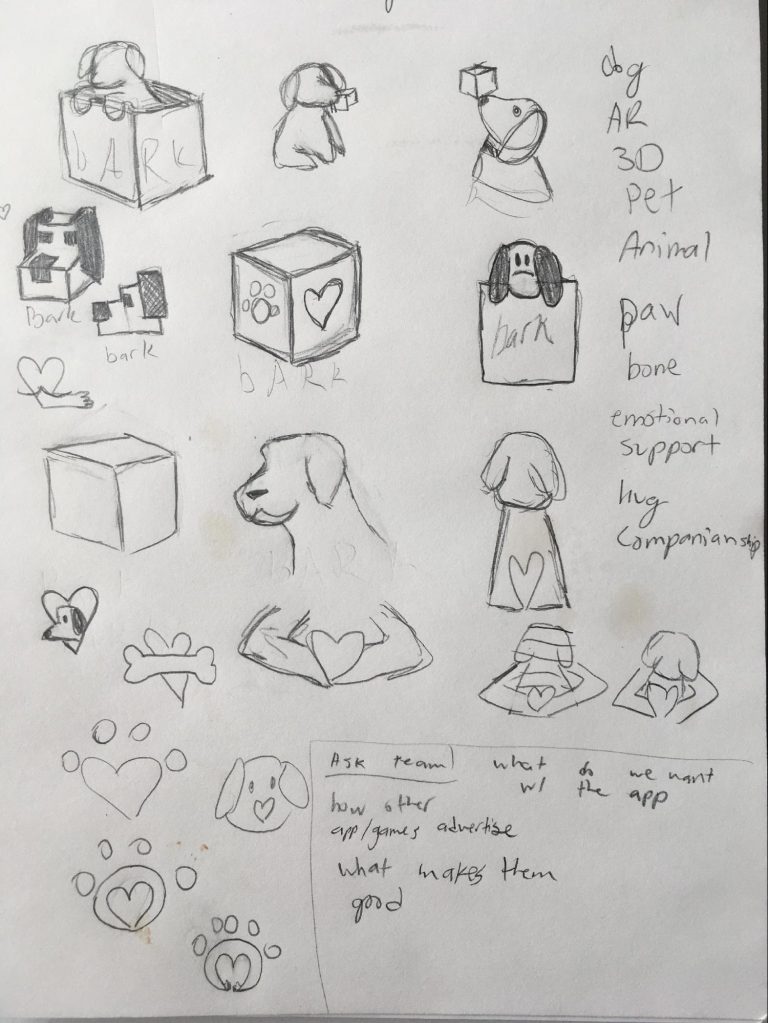 bARK
dog
AR
3D
Pet
Animal
paw
bone
emotional
support
hug
Companianship
Bark
bark
bARK
bark
bARK
Ask team!
what do we want
w/ the app
how other
app/games advertise
what makes them
good